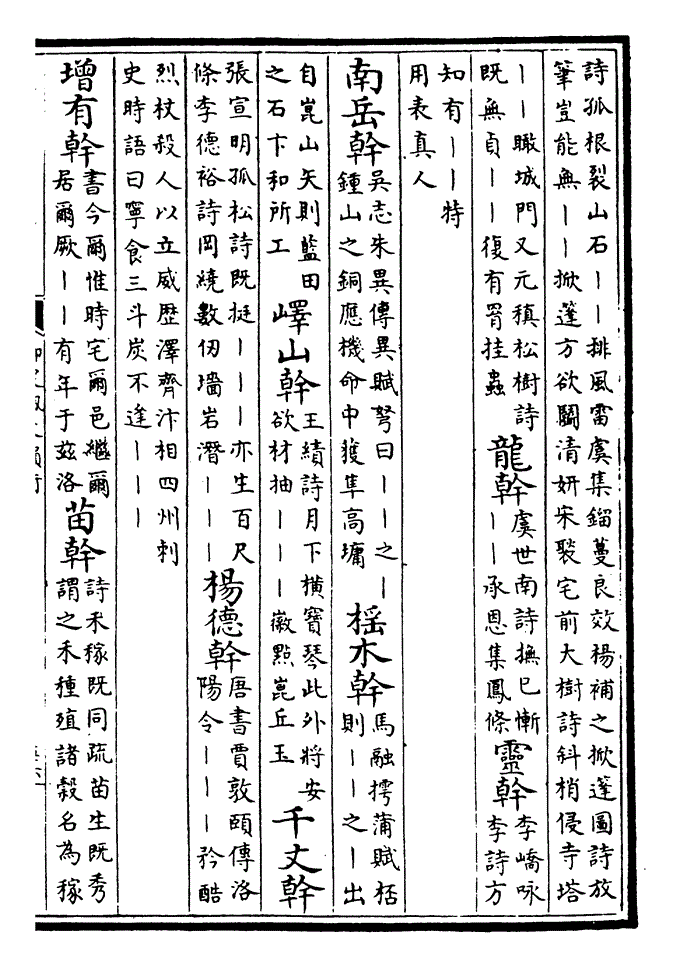 詩孤根裂山石丨丨排風雷虞集鎦蔓良效楊補之掀篷圖詩放
筆豈能無丨丨掀篷方欲鬭清妍宋褧宅前大樹詩斜梢侵寺塔
丨丨瞰城門又元稹松樹詩
既無貞丨丨復有罥挂蟲
龍幹
虞世南詩撫已慚
丨丨承恩集鳳條
靈幹
李嶠咏
李詩方
知有丨丨特
用表真人
南岳幹
吳志朱異傳異賦弩曰丨丨之丨
鍾山之銅應機命中獲隼高墉
榣木幹
馬融摴蒲賦栝
則丨丨之丨出
自崑山矢則藍田
之石卞和所工
嶧山幹
王績詩月下橫寶琴此外將安
欲材抽丨丨丨徽點崑丘玉
千丈幹
張宣明孤松詩既挺丨丨丨亦生百尺
條李德裕詩岡繞數仞墻岩潛丨丨丨
楊德幹
唐書賈敦頤傳洛
陽令丨丨丨矜酷
烈杖殺人以立威歷澤齊汴相四州刺
史時語曰寧食三斗炭不逢丨丨丨
增有幹
書今爾惟時宅爾邑繼爾
居爾厥丨丨有年于茲洛
苗幹
詩禾稼既同疏苗生既秀
謂之禾種殖諸榖名為稼